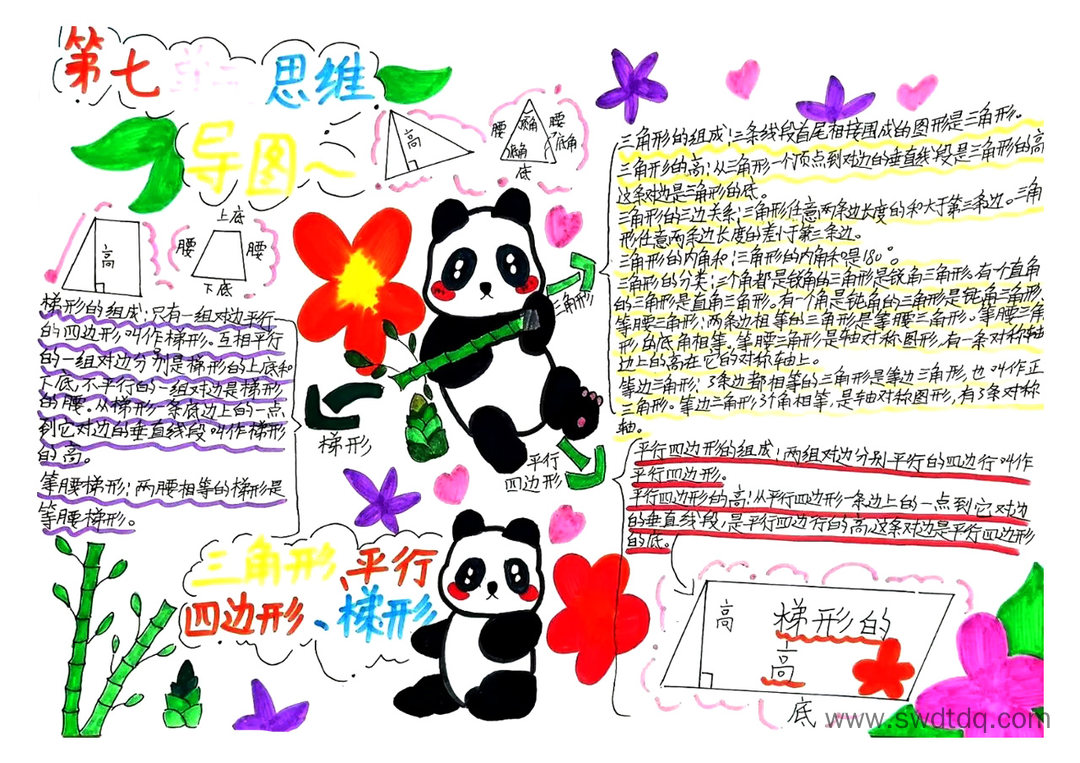 第七章思维
导图～
高
腰 顶角 腰
底角 底角
底
高
上底
腰 腰
下底
梯形的组成：只有一组对边平行
的四边形，叫作梯形。互相平行
的一组对边分别是梯形的上底和
下底，不平行的一组对边是梯形
的腰。从梯形一条底边上的一点
到它对边的垂直线段叫作梯形
的高。
等腰梯形：两腰相等的梯形是
等腰梯形。
三角形
梯形
平行
四边形
三角形的组成：三条线段首尾相接围成的图形是三角形。
三角形的高：从三角形一个顶点到对边的垂直线段是三角形的高
这条对边是三角形的底。
三角形的三边关系：三角形任意两条边长度的和大于第三条边。三角
形任意两条边长度的差小于第三条边。
三角形的内角和：三角形的内角和是180°。
三角形的分类：三个角都是锐角的三角形是锐角三角形。有一个直角
的三角形是直角三角形。有一个角是钝角的三角形是钝角三角形
等腰三角形：两条边相等的三角形是等腰三角形。等腰三角
形的底角相等。等腰三角形是轴对称图形，有一条对称轴
边上的高在它的对称轴上。
等边三角形：3条边都相等的三角形是等边三角形，也叫作正
三角形。等边三角形3个角相等，是轴对称图形，有3条对称
轴。
平行四边形的组成：两组对边分别平行的四边行叫作
平行四边形。
平行四边形的高：从平行四边形一条边上的一点到它对边
的垂直线段，是平行四边行的高，这条对边是平行四边形
的底。
三角形、平行
四边形、梯形
高
梯形的
高
底
www.swdtdq.com